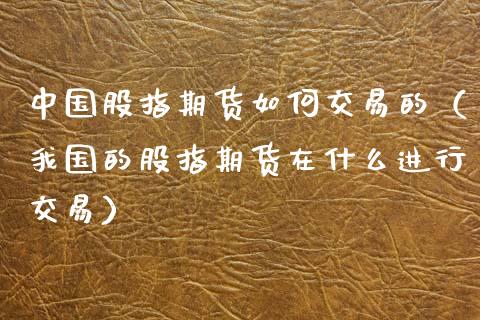 中国股指期货如何交易的（
我国的股指期货在什么进行
交易）